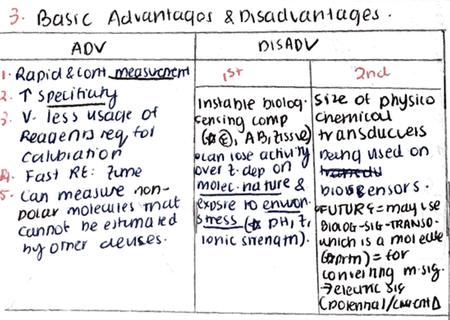 3. Basic Advantages & Disadvantages.
ADV
DISADV
1. Rapid & cont. measurement
2. ↑ specificity
3. V. less usage of
Reagents req for
Calibration
4. Fast RE: Time
5. Can measure non-
polar molecules that
cannot be estimated
by other devises.
1st
Instable biolog.
sensing comp
AB, Tissue)
can lose activity
over t. dep on
molec. nature &
exposre to environ.
stress (pH, T,
ionic strength).
2nd
Size of physico
chemical
transducers
being used on
biosensors.
FUTURE = may use
BIOLOG-SIG-TRANSD.
which is a molecule
= for
converting m.sig.
→ electric sig
(potential/current Δ